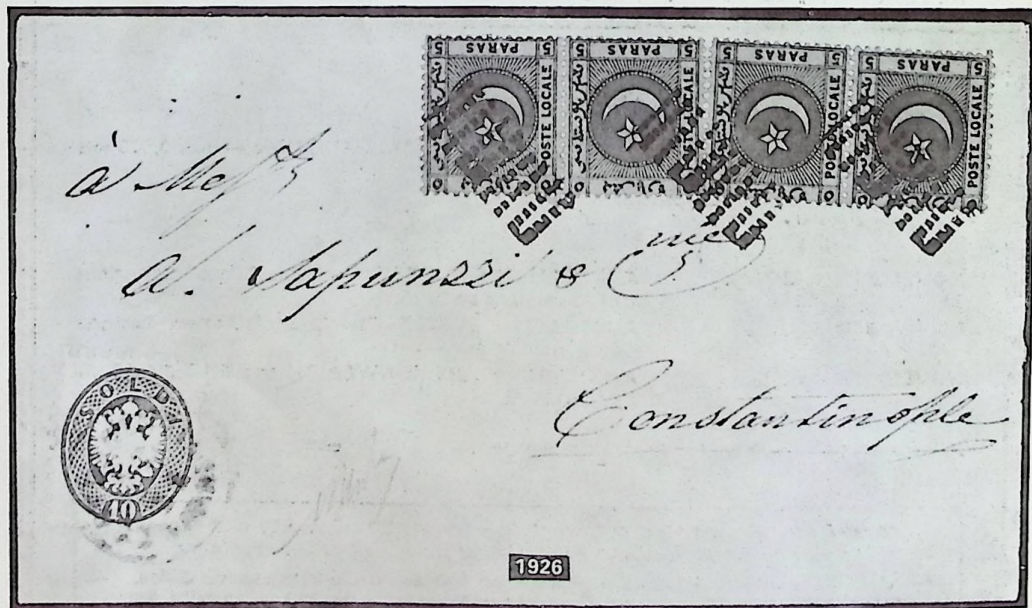 5 PARAS 5 POSTE LOCALE
5 PARAS 5 POSTE LOCALE
5 PARAS 5 POSTE LOCALE
5 PARAS 5 POSTE LOCALE
à Mess
A. Sapunzzi & Cie
Constantinople
SOLDI
10
1926